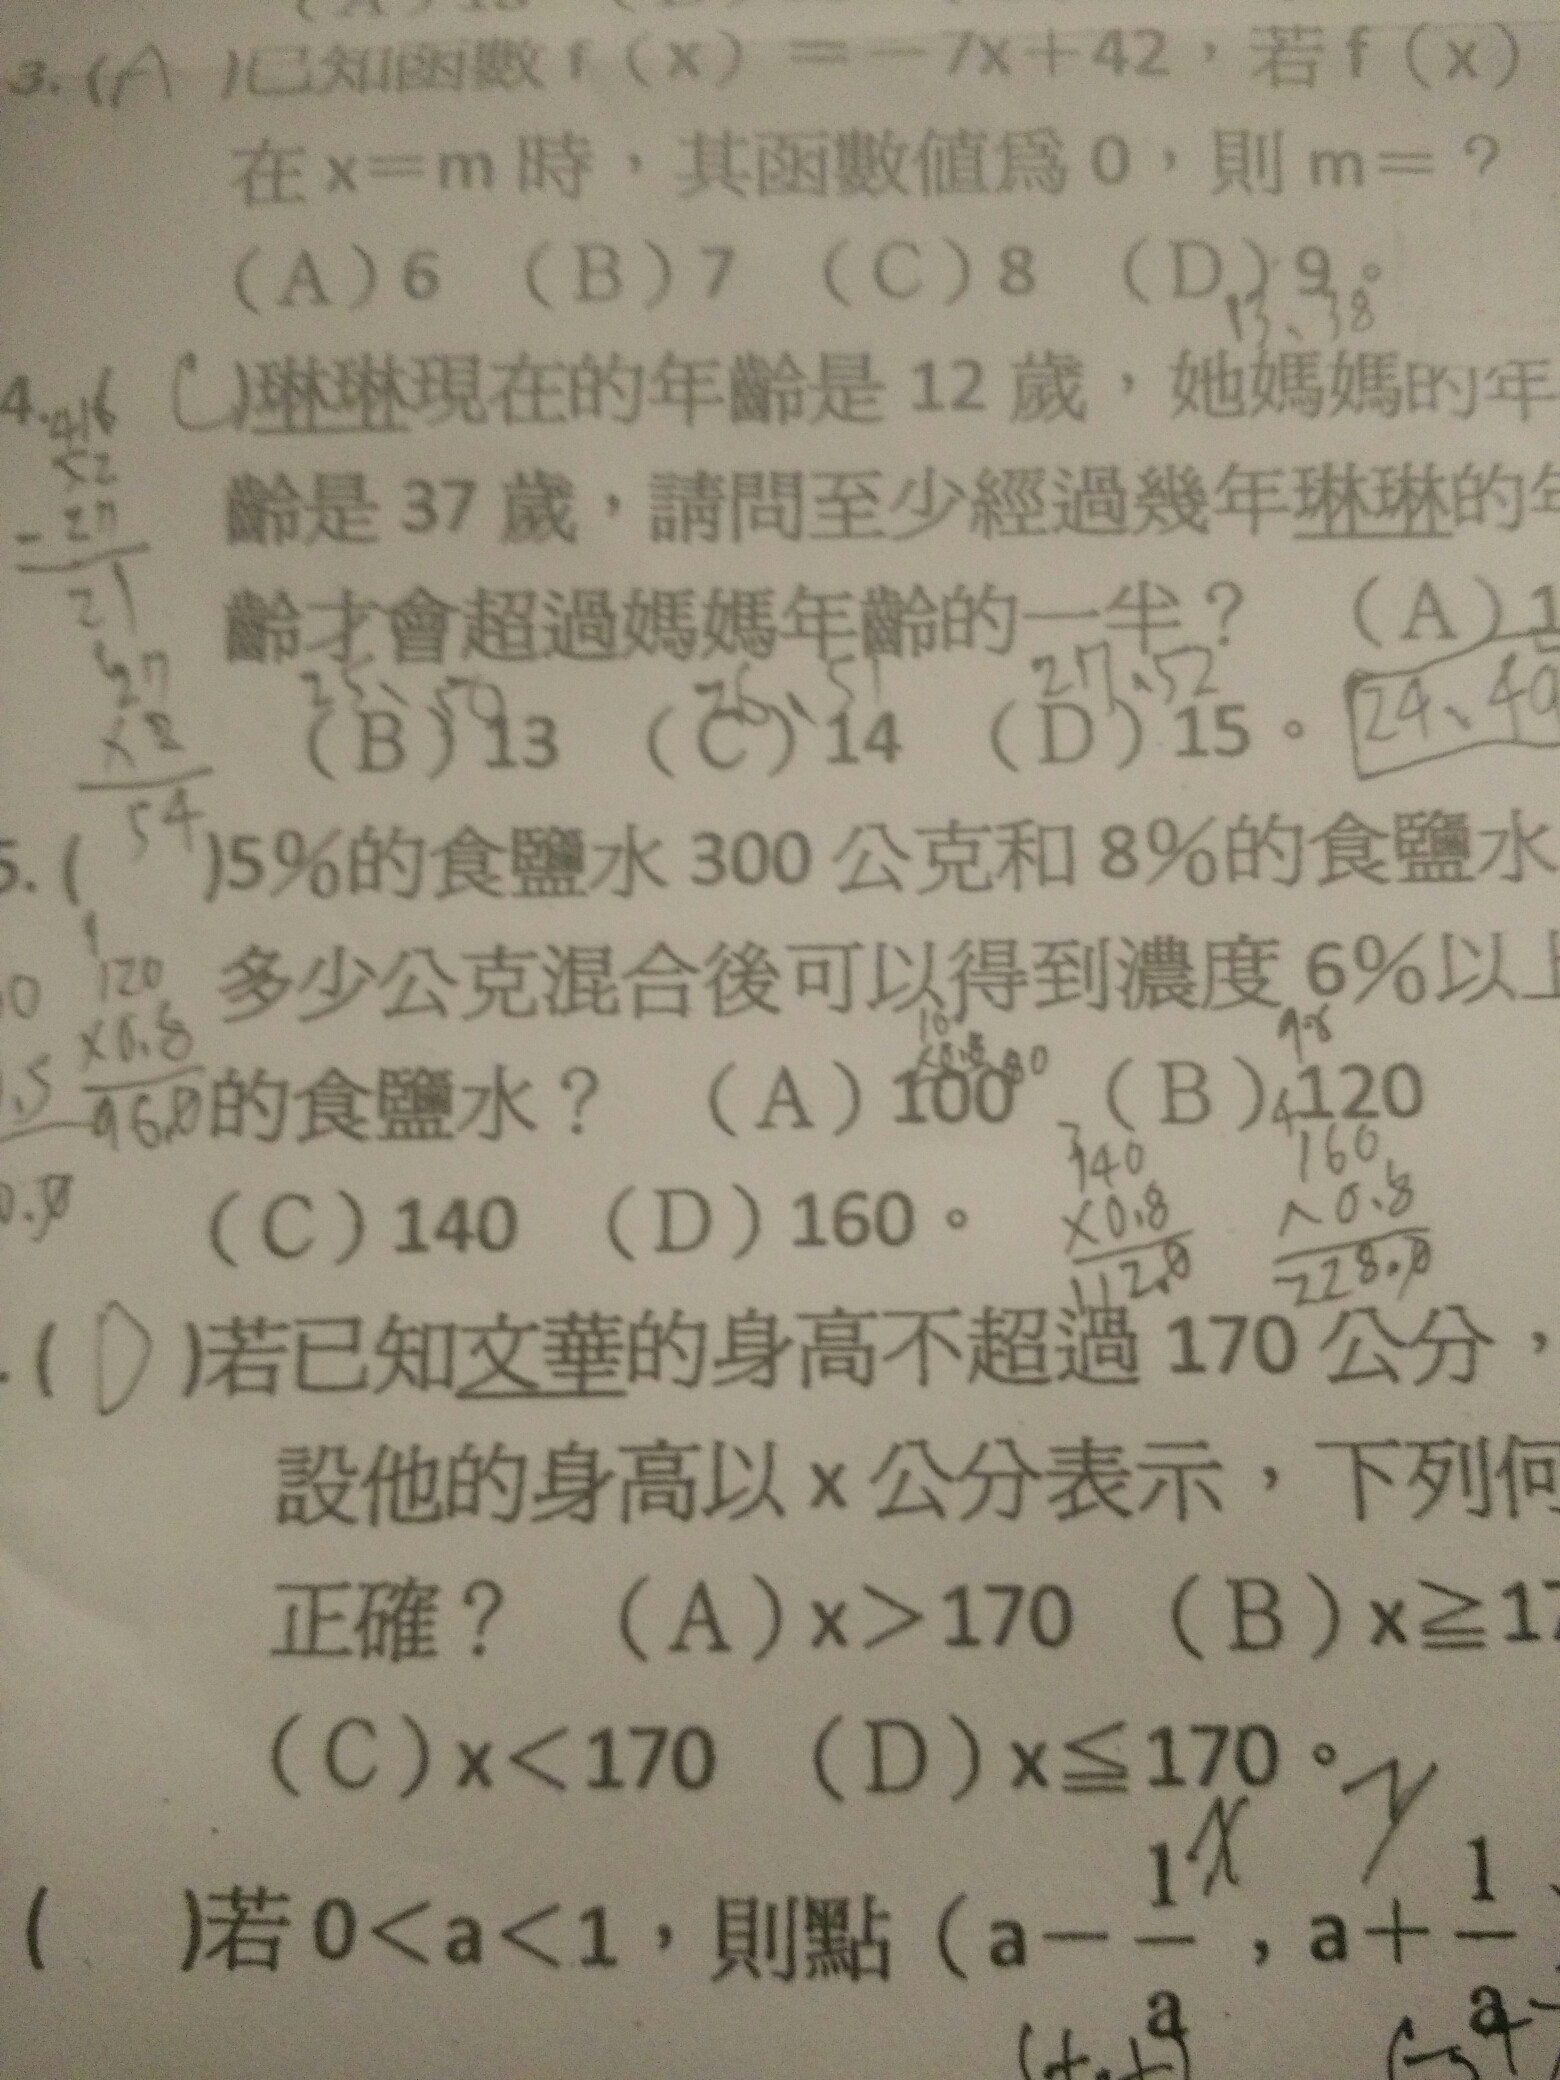 3. (A )已知函數 f（x）＝－7x＋42，若 f（x）
在 x＝m 時，其函數值為 0，則 m＝？
（A）6 （B）7 （C）8 （D）9。
13、38
4. (C )琳琳現在的年齡是 12 歲，她媽媽的年
齡是 37 歲，請問至少經過幾年琳琳的年
齡才會超過媽媽年齡的一半？ （A）1
25、50 26、51 27、52
（B）13 （C）14 （D）15。 24、49
27
×2
54
5. ( )5％的食鹽水 300 公克和 8％的食鹽水
多少公克混合後可以得到濃度 6％以上
的食鹽水？ （A）100 （B）120
120
×0.8
96.0
（C）140 （D）160。
140
×0.8
112.0
160
×0.8
228.0
. ( D )若已知文華的身高不超過 170 公分，
設他的身高以 x 公分表示，下列何
正確？ （A）x＞170 （B）x≧17
（C）x＜170 （D）x≦170。
x y
( )若 0＜a＜1，則點（a－1/a，a＋1/a